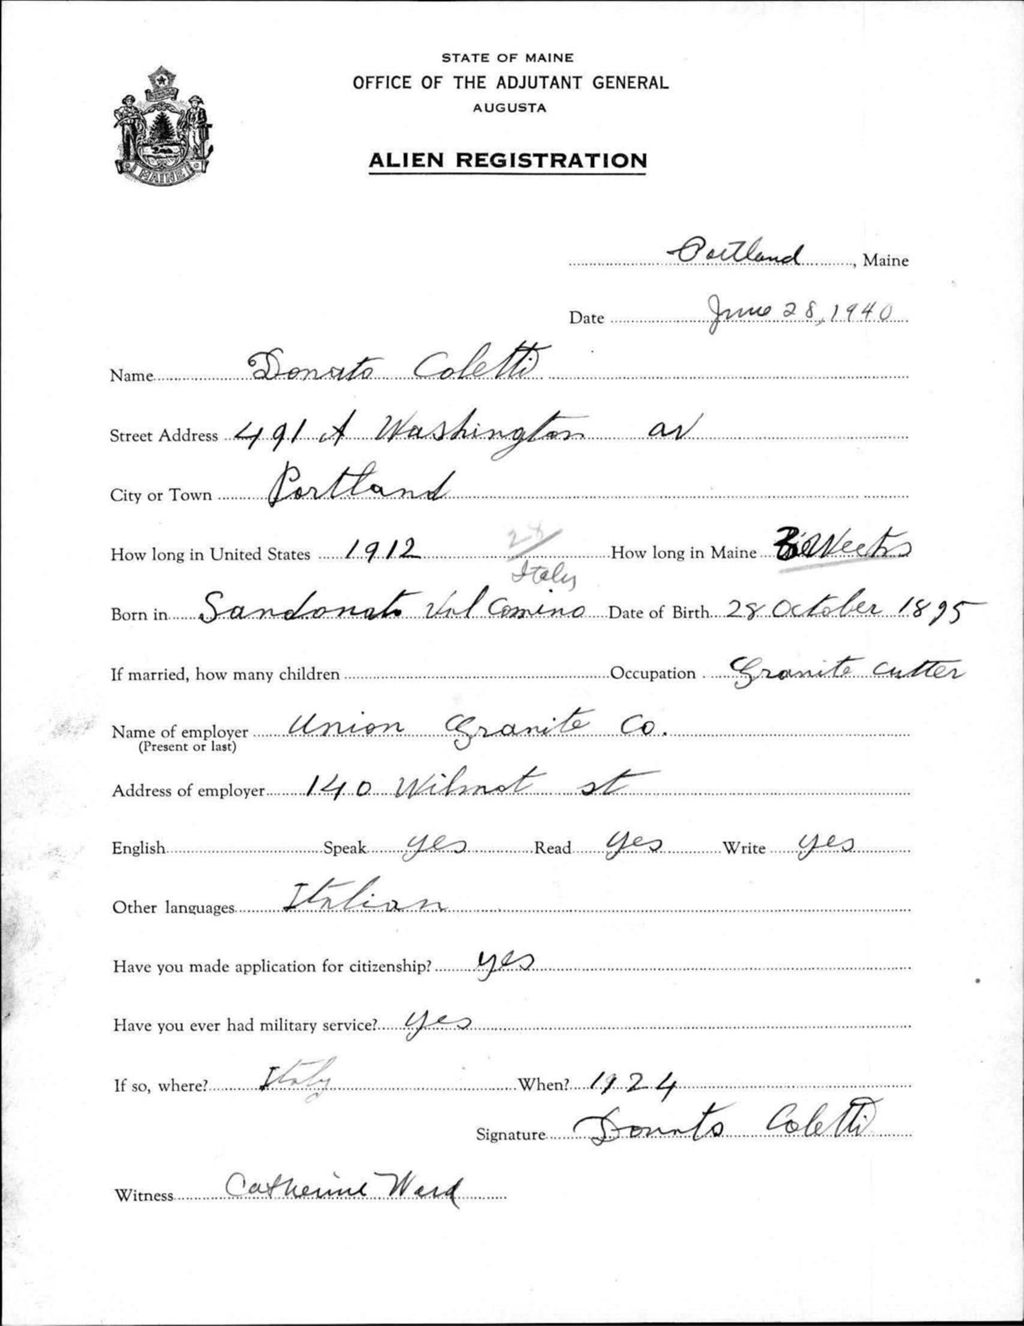 STATE OF MAINE
OFFICE OF THE ADJUTANT GENERAL
AUGUSTA
ALIEN REGISTRATION
MAINE
Portland, Maine
Date June 28, 1940
Name Donato Coletti
Street Address 491 A Washington av
City or Town Portland
How long in United States 1912 28/ How long in Maine Weeks
Italy
Born in Sandonato Val Comino Date of Birth 28 October 1895
If married, how many children Occupation Granite cutter
Name of employer Union Granite Co.
(Present or last)
Address of employer 140 Wilmot st
English Speak yes Read yes Write yes
Other languages Italian
Have you made application for citizenship? yes
Have you ever had military service? yes
If so, where? Italy When? 1924
Signature Donato Coletti
Witness Catherine Ward